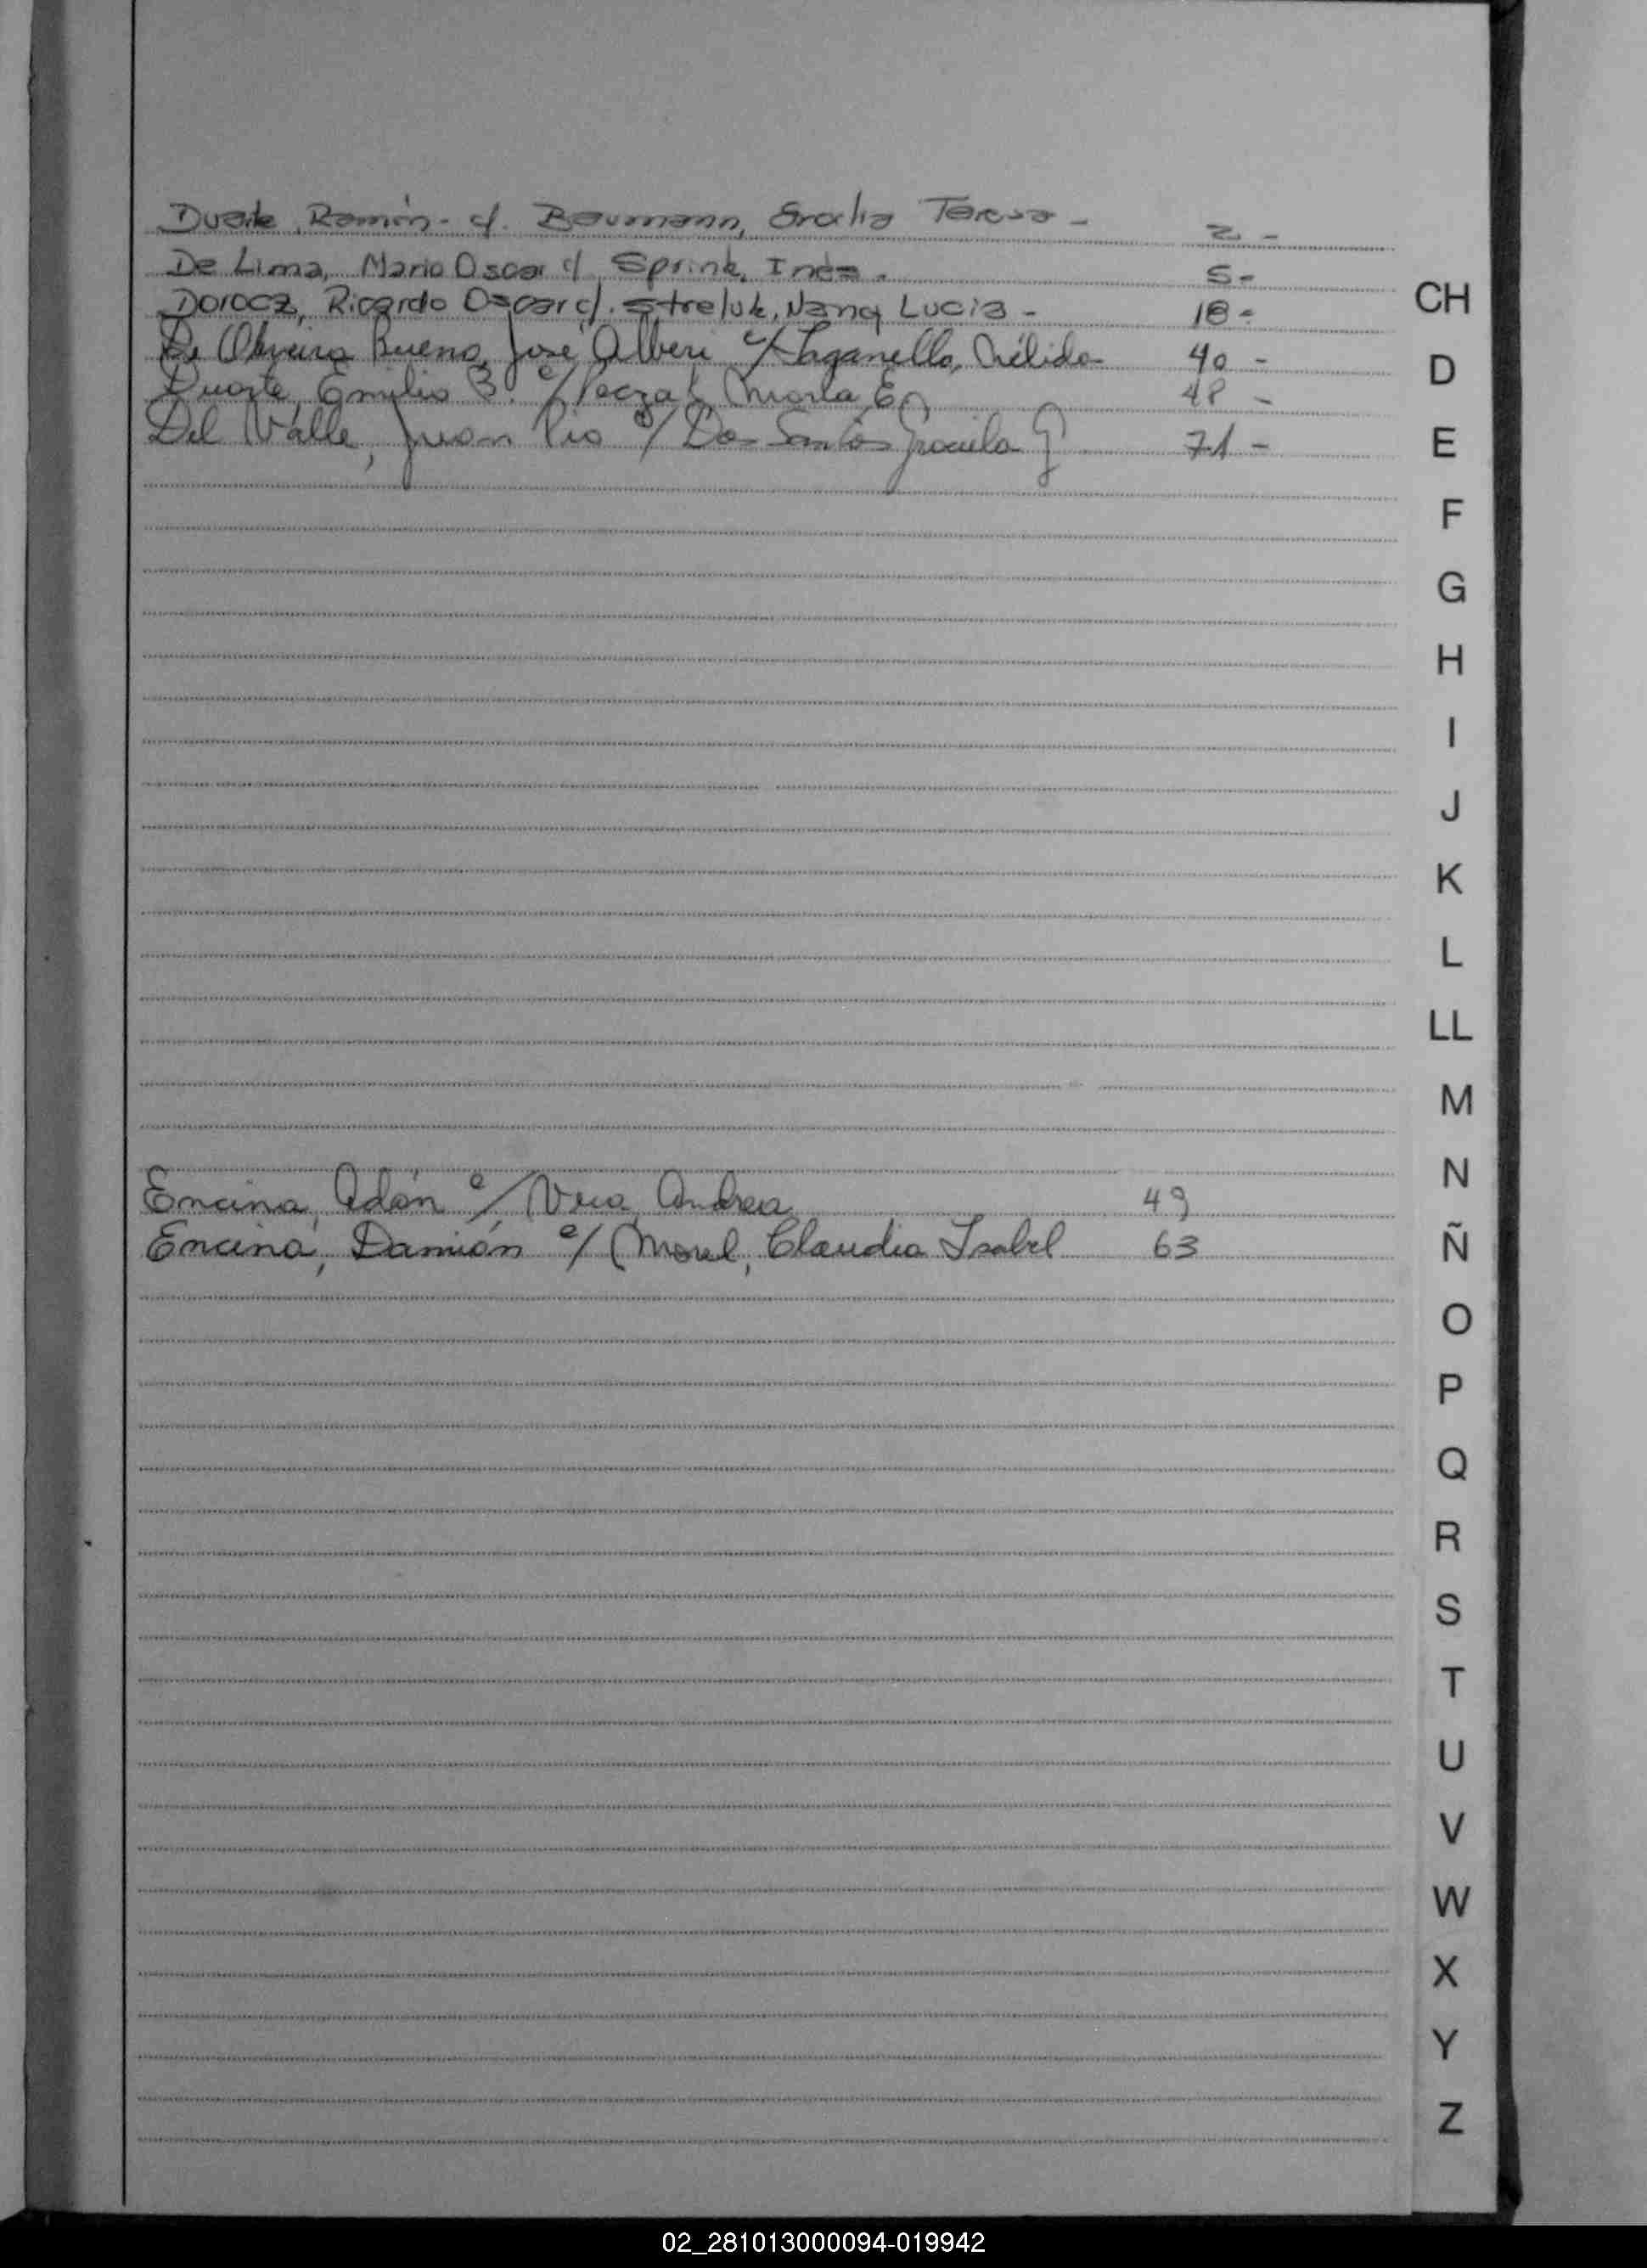 Duarte, Ramón - c/. Baumann, Teresa - 2 -
De Lima, Mario Oscar c/ Sprink, Inés. 5 -
Dorocz, Ricardo Oscar c/. Streluk, Nancy Lucia - 18 -
De Oliveira Bueno, José Alberi c/ Laganello, Nélida 40 -
Duarte, Emilio B. c/ Peczak María E. 48 -
Del Valle, Juan Pio c/ Dos Santos Graciela G 71 -
Encina, Adán c/ Vera, Andrea 49
Encina, Damián c/ Morel, Claudia Isabel 63
CH
D
E
F
G
H
I
J
K
L
LL
M
N
Ñ
O
P
Q
R
S
T
U
V
W
X
Y
Z
02_281013000094-019942